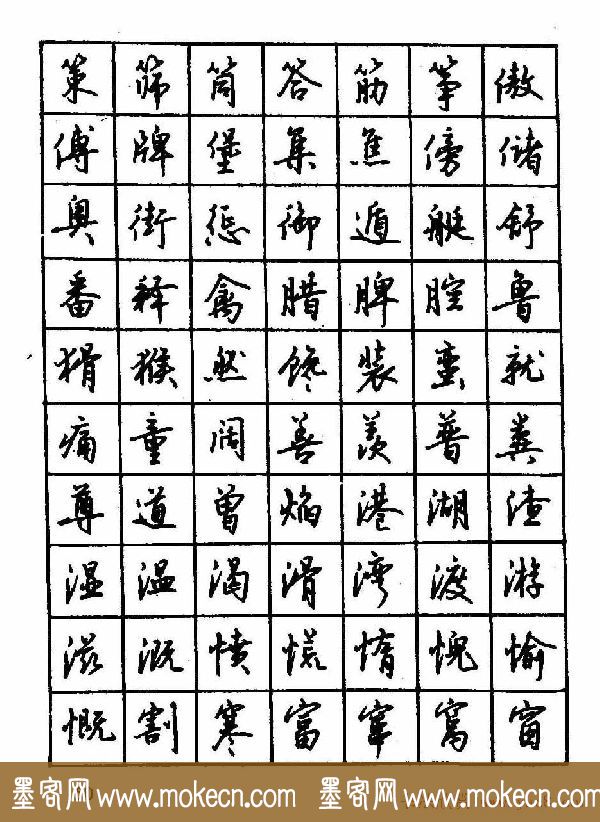 策筛筒答筋筝傲
傅牌堡集焦傍储
奥街惩御遁艇舒
番释禽腊脾腔鲁
猾猴然馋装蛮就
痛童阔善羡普粪
尊道曾焰港湖渣
湿温渴滑湾渡游
滋溉愤慌惰愧愉
慨割寒富窜窝窗
墨客网 www.mokecn.com 墨客网 www.mokecn.com